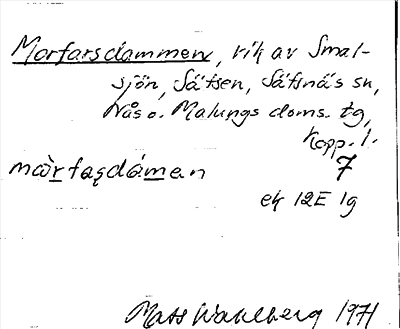 Morfarsdammen, vik av Smal-
sjön, Sätsen, Säfsnäs sn,
Nås o. Malungs doms. tg,
Kopp. l.
7
màrfaṣdámen
ek 12E 1g
Mats Wahlberg 1971